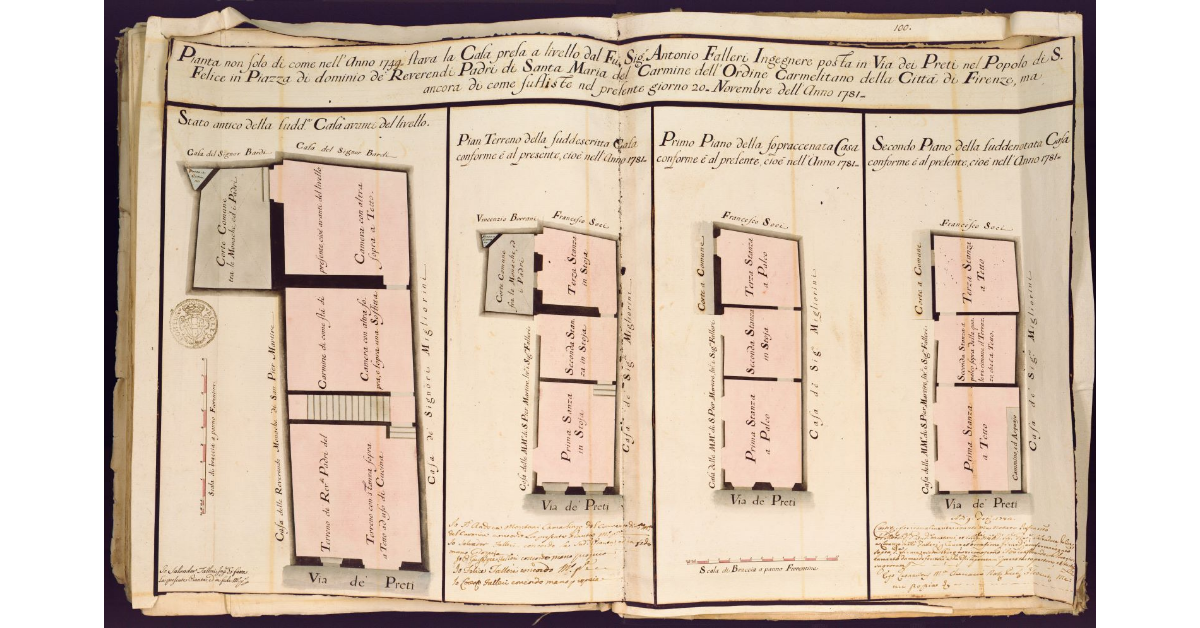 100.
Pianta non solo di come nell'Anno 1744 stava la Casa presa a livello dal Fu Sig. Antonio Falleri Ingegnere posta in Via dei Preti nel Popolo di S.
Felice in Piazza di dominio de' Reverendi Padri di Santa Maria del Carmine dell'Ordine Carmelitano della Città di Firenze, ma
ancora di come sussiste nel presente giorno 20. Novembre dell'Anno 1781.
Stato antico della sudd.ta Casa avante del livello.
Casa del Signor Bardi
Casa del Signor Bardi
Corte Comune
tra le Monache, ed i Padri.
presente cioè avanti del livello
Camera con altra
sopra a Tetto.
Carmine di come stà di
Camera con altra so
pra, e sopra una Soffitta.
Terreno de Rev.di Padri del
Terreno con stanza sopra
a Tetto ad uso di Cucina.
Casa delle Reverende Monache di San Pier Martire
Casa de' Signori Migliorini
Scala di braccia a panno Fiorentine
Via de' Preti
Io Salvador Falleri
Pian Terreno della suddescritta Casa
conforme è al presente, cioè nell'Anno 1781.
Vincenzio Borrani
Francesco Soci
Corte Comune
fra le Monache, e
i Padri
Terza Stanza
in Stoja.
Seconda Stan
za in Stoja.
Prima Sanza
in Stoja.
Casa delle MM. di S. Pier Martire, liv.o Sig.r Falleri.
Casa de Sig.ri Migliorini
Via de' Preti
concordo mano propria
Primo Piano della sopraccenata Casa
conforme è al presente, cioè nell'Anno 1781.
Francesco Soci
Corte a Comune
Terza Stanza
a Palco
Seconda Stanza
in Stoja
Prima Stanza
a Palco
Casa delle MM. di S. Pier Martire, liv.o i Sig.ri Falleri
Casa de Sig.ri Migliorini
Via de' Preti
Scala di Braccia a panno Fiorentine
Secondo Piano della suddenotata Casa
conforme è al presente, cioè nell'Anno 1781.
Francesco Soci
Corte a Comune
Terza Stanza
a Tetto
Seconda Stanza a
Prima Stanza
a Tetto
Cammino ed Acquaio
Casa delle MM. di S. Pier Martire, liv.o i Sig.ri Falleri
Casa de' Sig.ri Migliorini
Via de' Preti